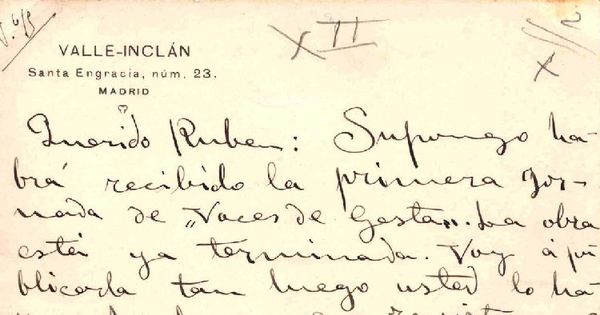 VALLE-INCLÁN
Santa Engracia, núm. 23.
MADRID
XII
X
Querido Ruben: Supongo ha-
brá recibido la primera Jor-
nada de „Voces de Gesta". La obra
está ya terminada. Voy á pu
blicarla tan luego usted lo ha